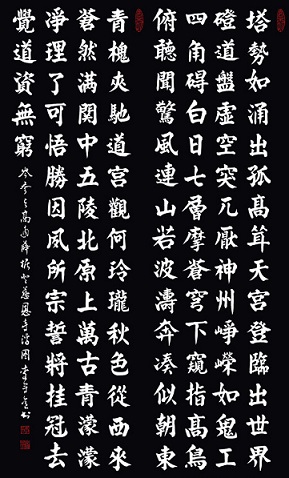 塔勢如涌出孤髙聳天宮登臨出世界
磴道盤虛空突兀厭神州崢嶸如鬼工
四角碍白日七層摩蒼穹下窺指髙鳥
俯聽聞驚風連山若波濤奔湊似朝東
青槐夾馳道宮觀何玲瓏秋色從西來
蒼然满関中五陵北原上萬古青濛濛
淨理了可悟勝因夙所宗誓將挂冠去
覺道資無窮